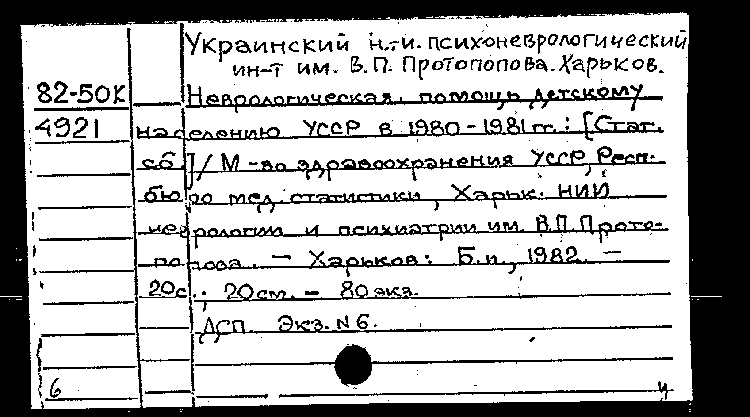 Украинский н.-и. психоневрологический
ин-т им. В.П. Протопопова. Харьков.
82-50К Неврологическая помощь детскому
4921 населению УССР в 1980-1981 гг.: [Стат.
сб]/ М-во здравоохранения УССР, Респ.
бюро мед. статистики, Харьк. НИИ
неврологии и психиатрии им. В.П. Прото-
попова. - Харьков: Б.и., 1982. -
20с.; 20см. - 80 экз.
ДСП. Экз. N 6.
6 ч